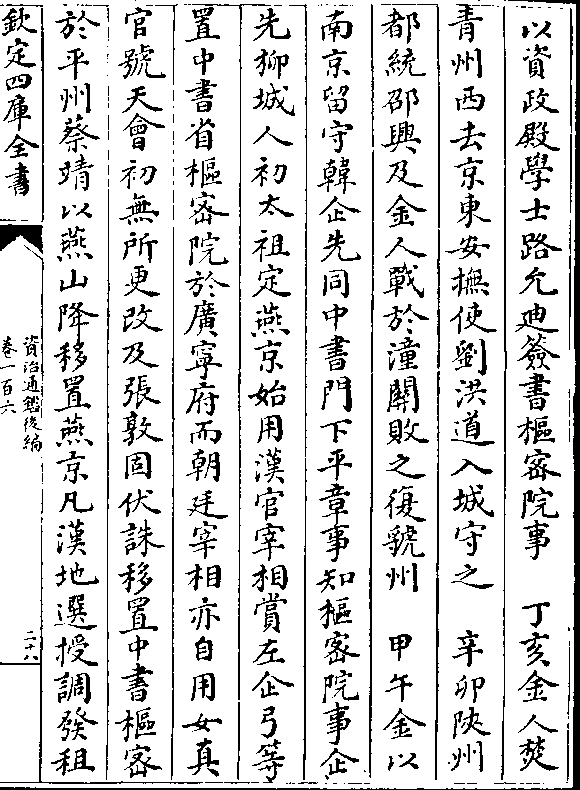 以資政殿學士路允迪簽書樞密院事　丁亥金人焚
青州西去京東安撫使劉洪道入城守之　辛卯陜州
都統邵興及金人戰於潼關敗之復虢州　甲午金以
南京留守韓企先同中書門下平章事知樞密院事企
先柳城人初太祖定燕京始用漢官宰相賞左企弓等
置中書省樞密院於廣寧府而朝廷宰相亦自用女真
官號天會初無所更改及張敦固伏誅移置中書樞密
於平州蔡靖以燕山降移置燕京凡漢地選授調發租
欽定四庫全書
資治通鑑後編
卷一百六
二十八